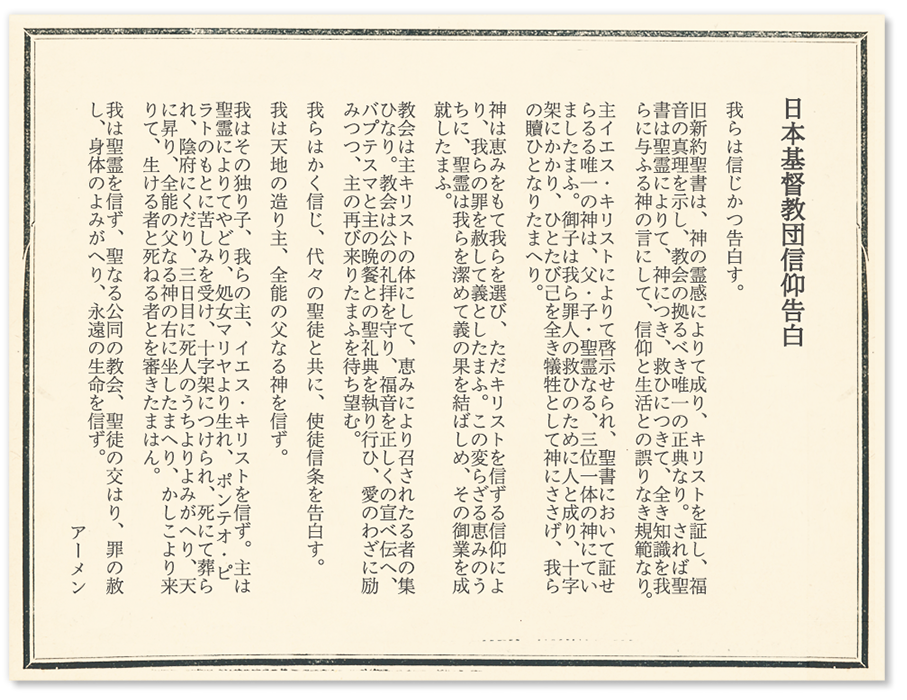 日本基督教団信仰告白
我らは信じかつ告白す。
旧新約聖書は、神の霊感によりて成り、キリストを証し、福
音の真理を示し、教会の拠るべき唯一の正典なり。されば聖
書は聖霊によりて、神につき、救ひにつきて、全き知識を我
らに与ふる神の言にして、信仰と生活との誤りなき規範なり。
主イエス・キリストによりて啓示せられ、聖書において証せ
らるる唯一の神は、父・子・聖霊なる、三位一体の神にてい
ましたまふ。御子は我ら罪人の救ひのために人と成り、十字
架にかかり、ひとたび己を全き犠牲として神にささげ、我ら
の贖ひとなりたまへり。
神は恵みをもて我らを選び、ただキリストを信ずる信仰によ
り、我らの罪を赦して義としたまふ。この変らざる恵みのう
ちに、聖霊は我らを潔めて義の果を結ばしめ、その御業を成
就したまふ。
教会は主キリストの体にして、恵みにより召されたる者の集
ひなり。教会は公の礼拝を守り、福音を正しくの宣べ伝へ、
バプテスマと主の晩餐との聖礼典を執り行ひ、愛のわざに励
みつつ、主の再び来りたまふを待ち望む。
我らはかく信じ、代々の聖徒と共に、使徒信条を告白す。
我は天地の造り主、全能の父なる神を信ず。
我はその独り子、我らの主、イエス・キリストを信ず。主は
聖霊によりてやどり、処女マリヤより生れ、ポンテオ・ピ
ラトのもとに苦しみを受け、十字架につけられ、死にて葬ら
れ、陰府にくだり、三日目に死人のうちよりよみがへり、天
に昇り、全能の父なる神の右に坐したまへり、かしこより来
りて、生ける者と死ねる者とを審きたまはん。
我は聖霊を信ず、聖なる公同の教会、聖徒の交はり、罪の赦
し、身体のよみがへり、永遠の生命を信ず。
アーメン